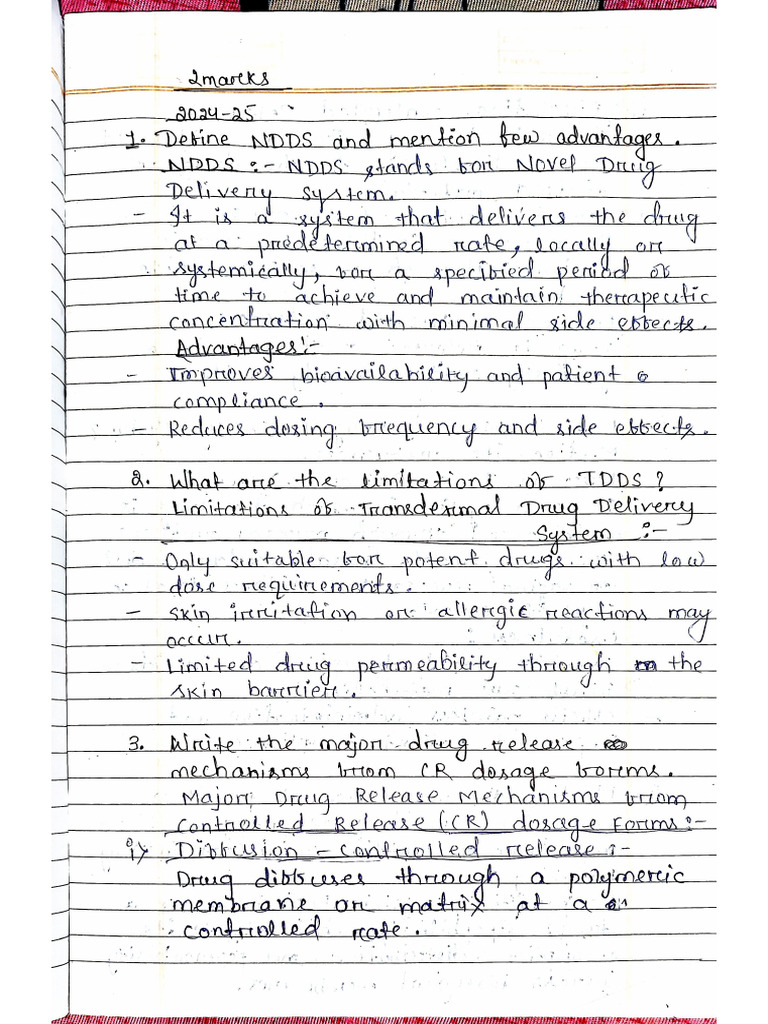 2marks
2024-25
1. Define NDDS and mention few advantages.
NDDS :- NDDS stands for Novel Drug
Delivery System.
- It is a system that delivers the drug
at a predetermined rate, locally or
systemically, for a specified period of
time to achieve and maintain therapeutic
concentration with minimal side effects.
Advantages:-
- Improves bioavailability and patient
compliance.
- Reduces dosing frequency and side effects.
2. What are the limitations of TDDS?
Limitations of Transdermal Drug Delivery
System :-
- Only suitable for potent drugs with low
dose requirements.
- Skin irritation or allergic reactions may
occur.
- Limited drug permeability through the
skin barrier.
3. Write the major drug release
mechanisms from CR dosage forms.
Major Drug Release Mechanisms from
Controlled Release (CR) dosage Forms:-
i) Diffusion - controlled release :-
Drug diffuses through a polymeric
membrane or matrix at a
controlled rate.